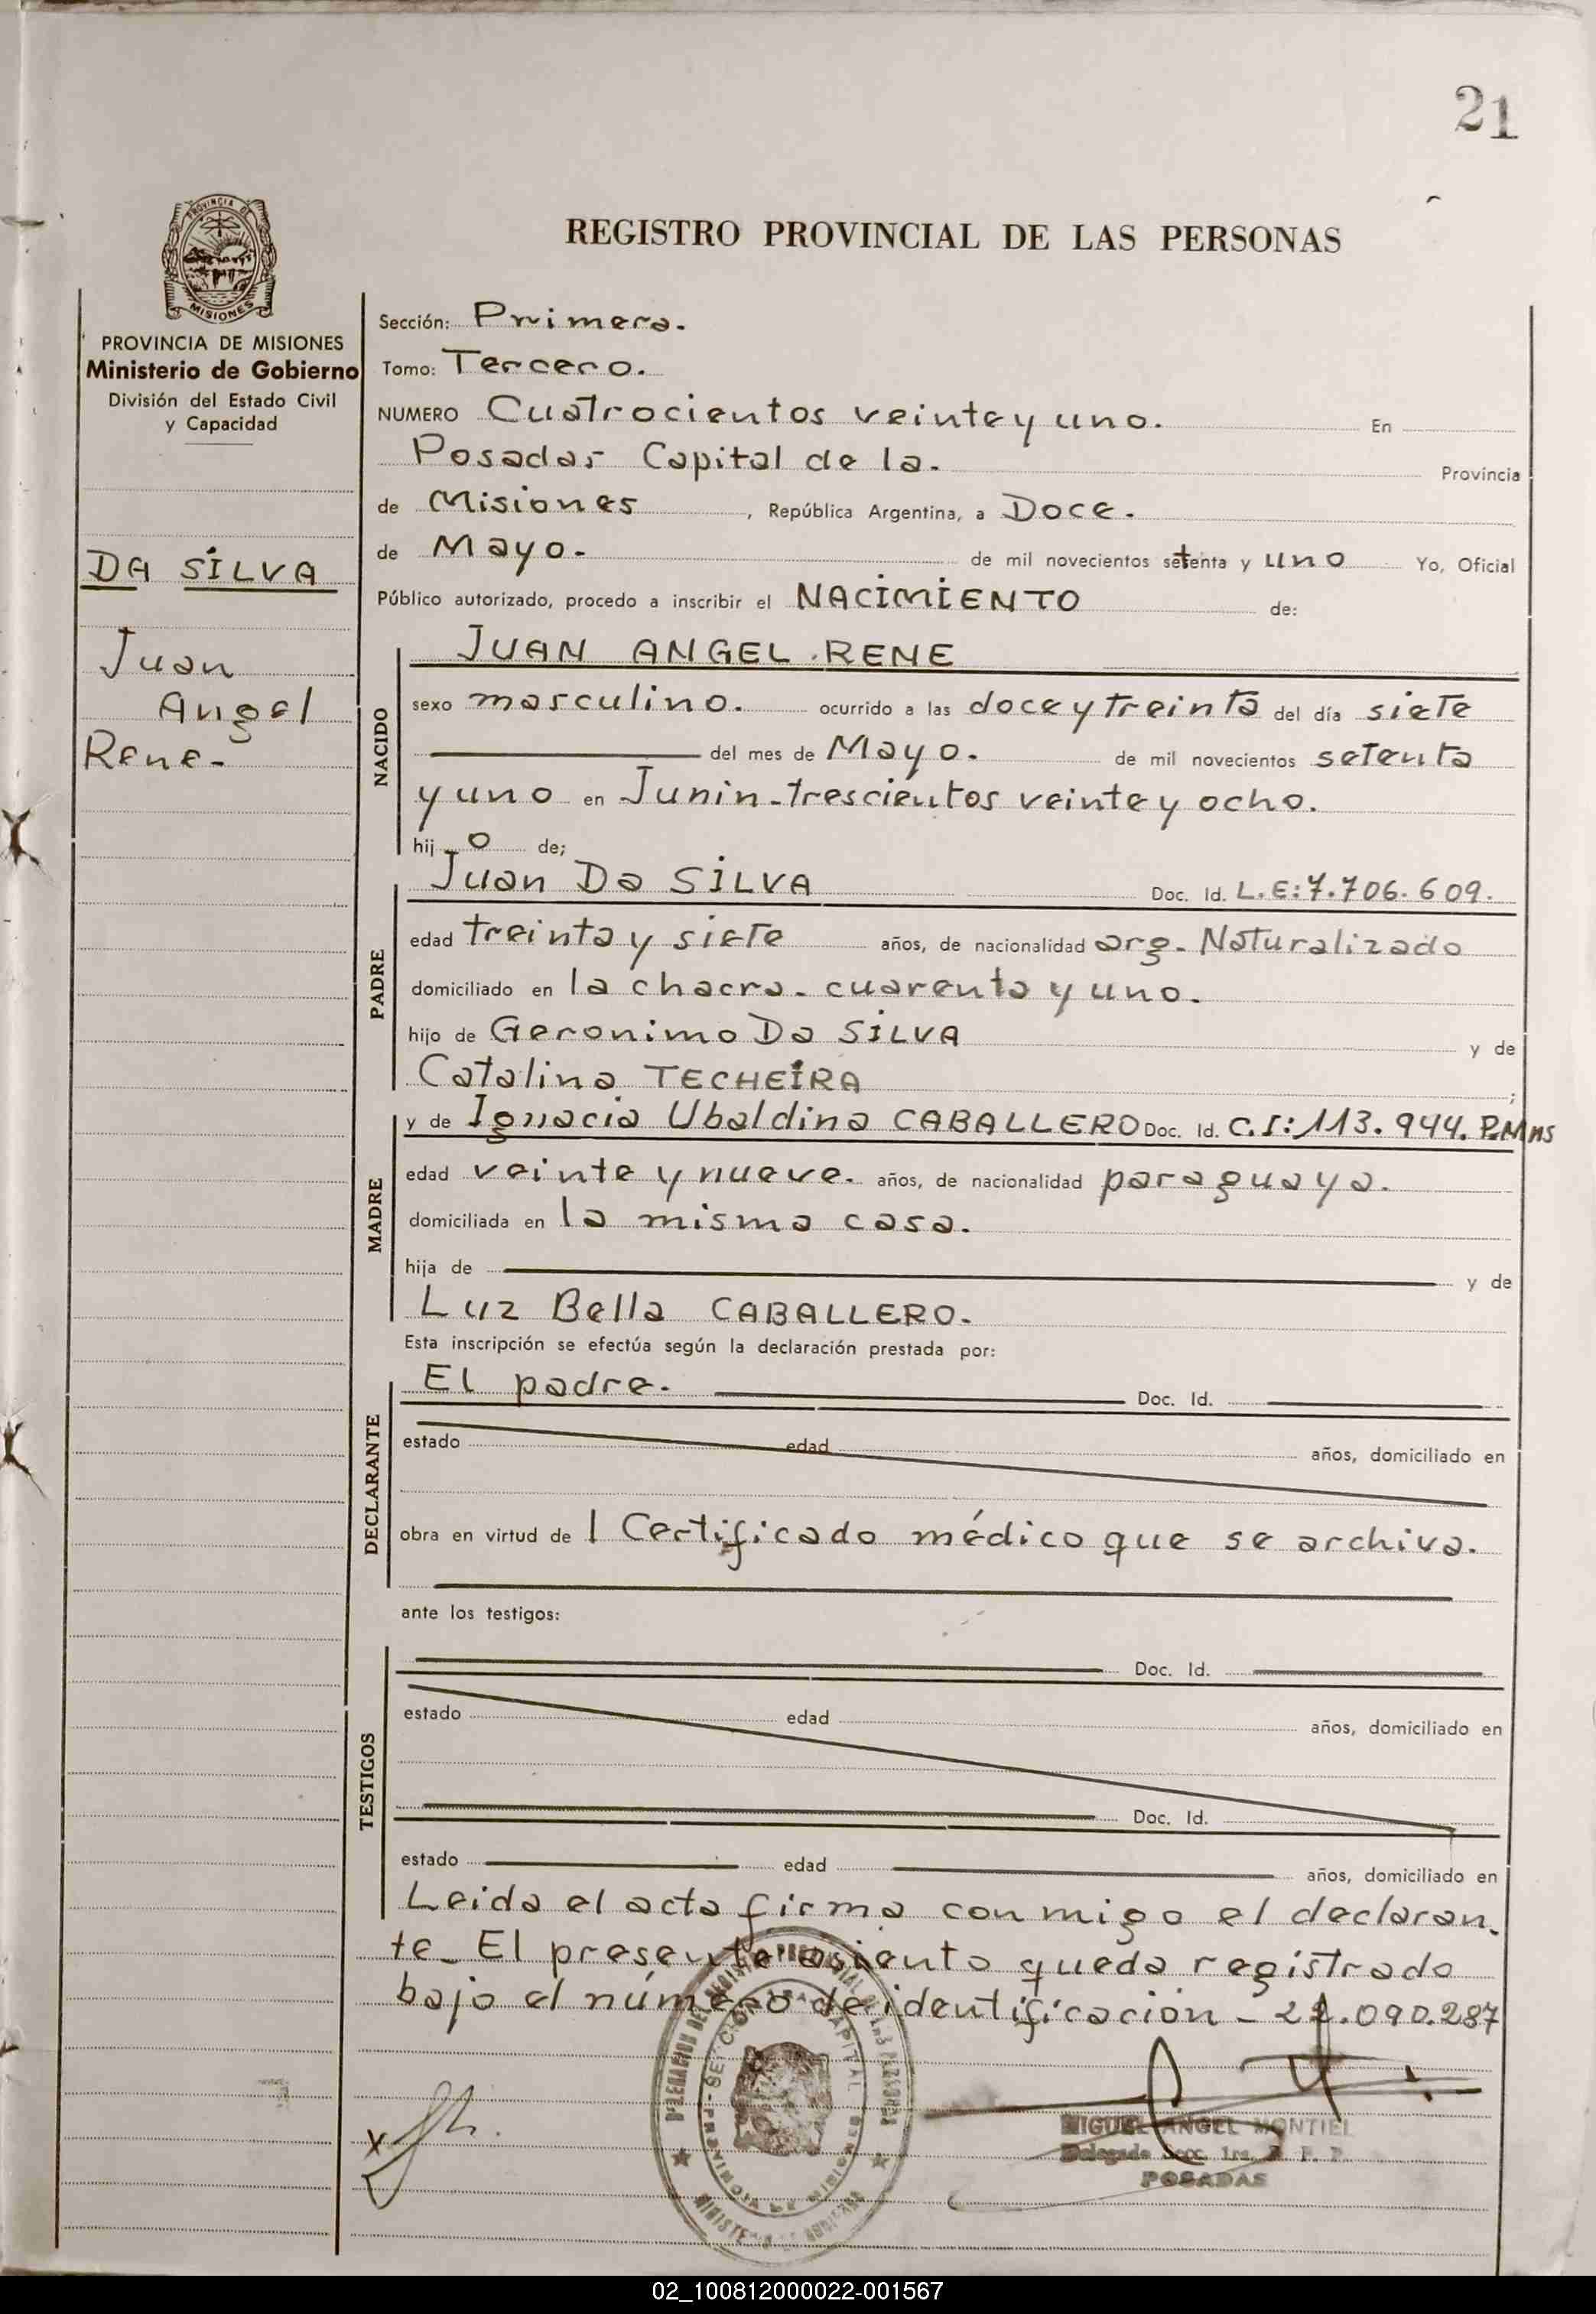 21
PROVINCIA DE
MISIONES
REGISTRO PROVINCIAL DE LAS PERSONAS
PROVINCIA DE MISIONES
Ministerio de Gobierno
División del Estado Civil
y Capacidad
DA SILVA
Juan
Angel
Rene-
Sección: Primera.
Tomo: Tercero.
NUMERO Cuatrocientos veinte y uno. En
Posadas Capital de la. Provincia
de Misiones, República Argentina, a Doce.
de Mayo. de mil novecientos setenta y uno Yo, Oficial
Público autorizado, procedo a inscribir el NACIMIENTO de:
NACIDO
JUAN ANGEL RENE
sexo masculino. ocurrido a las doce y treinta del día siete
del mes de Mayo. de mil novecientos setenta
y uno en Junin-trescientos veinte y ocho.
hij o de;
PADRE
Juan Da SILVA Doc. Id. L.E:7.706.609.
edad treinta y siete años, de nacionalidad arg. Naturalizado
domiciliado en la chacra. cuarenta y uno.
hijo de Geronimo Da SILVA y de
Catalina TECHEIRA ;
MADRE
y de Ignacia Ubaldina CABALLERO Doc. Id. C.I:113.944. P.Mns
edad veinte y nueve. años, de nacionalidad paraguaya.
domiciliada en la misma casa.
hija de y de
Luz Bella CABALLERO.
Esta inscripción se efectúa según la declaración prestada por:
DECLARANTE
El padre. Doc. Id.
estado edad años, domiciliado en
obra en virtud de 1 Certificado médico que se archiva.
ante los testigos:
TESTIGOS
Doc. Id.
estado edad años, domiciliado en
Doc. Id.
estado edad años, domiciliado en
Leida el acta firma conmigo el declaran.
te- El presente asiento queda registrado
bajo el número de identificación -
X
MIGUEL ANGEL MONTIEL
Delegado Secc. 1ra. R. P. P.
POSADAS
02_100812000022-001567